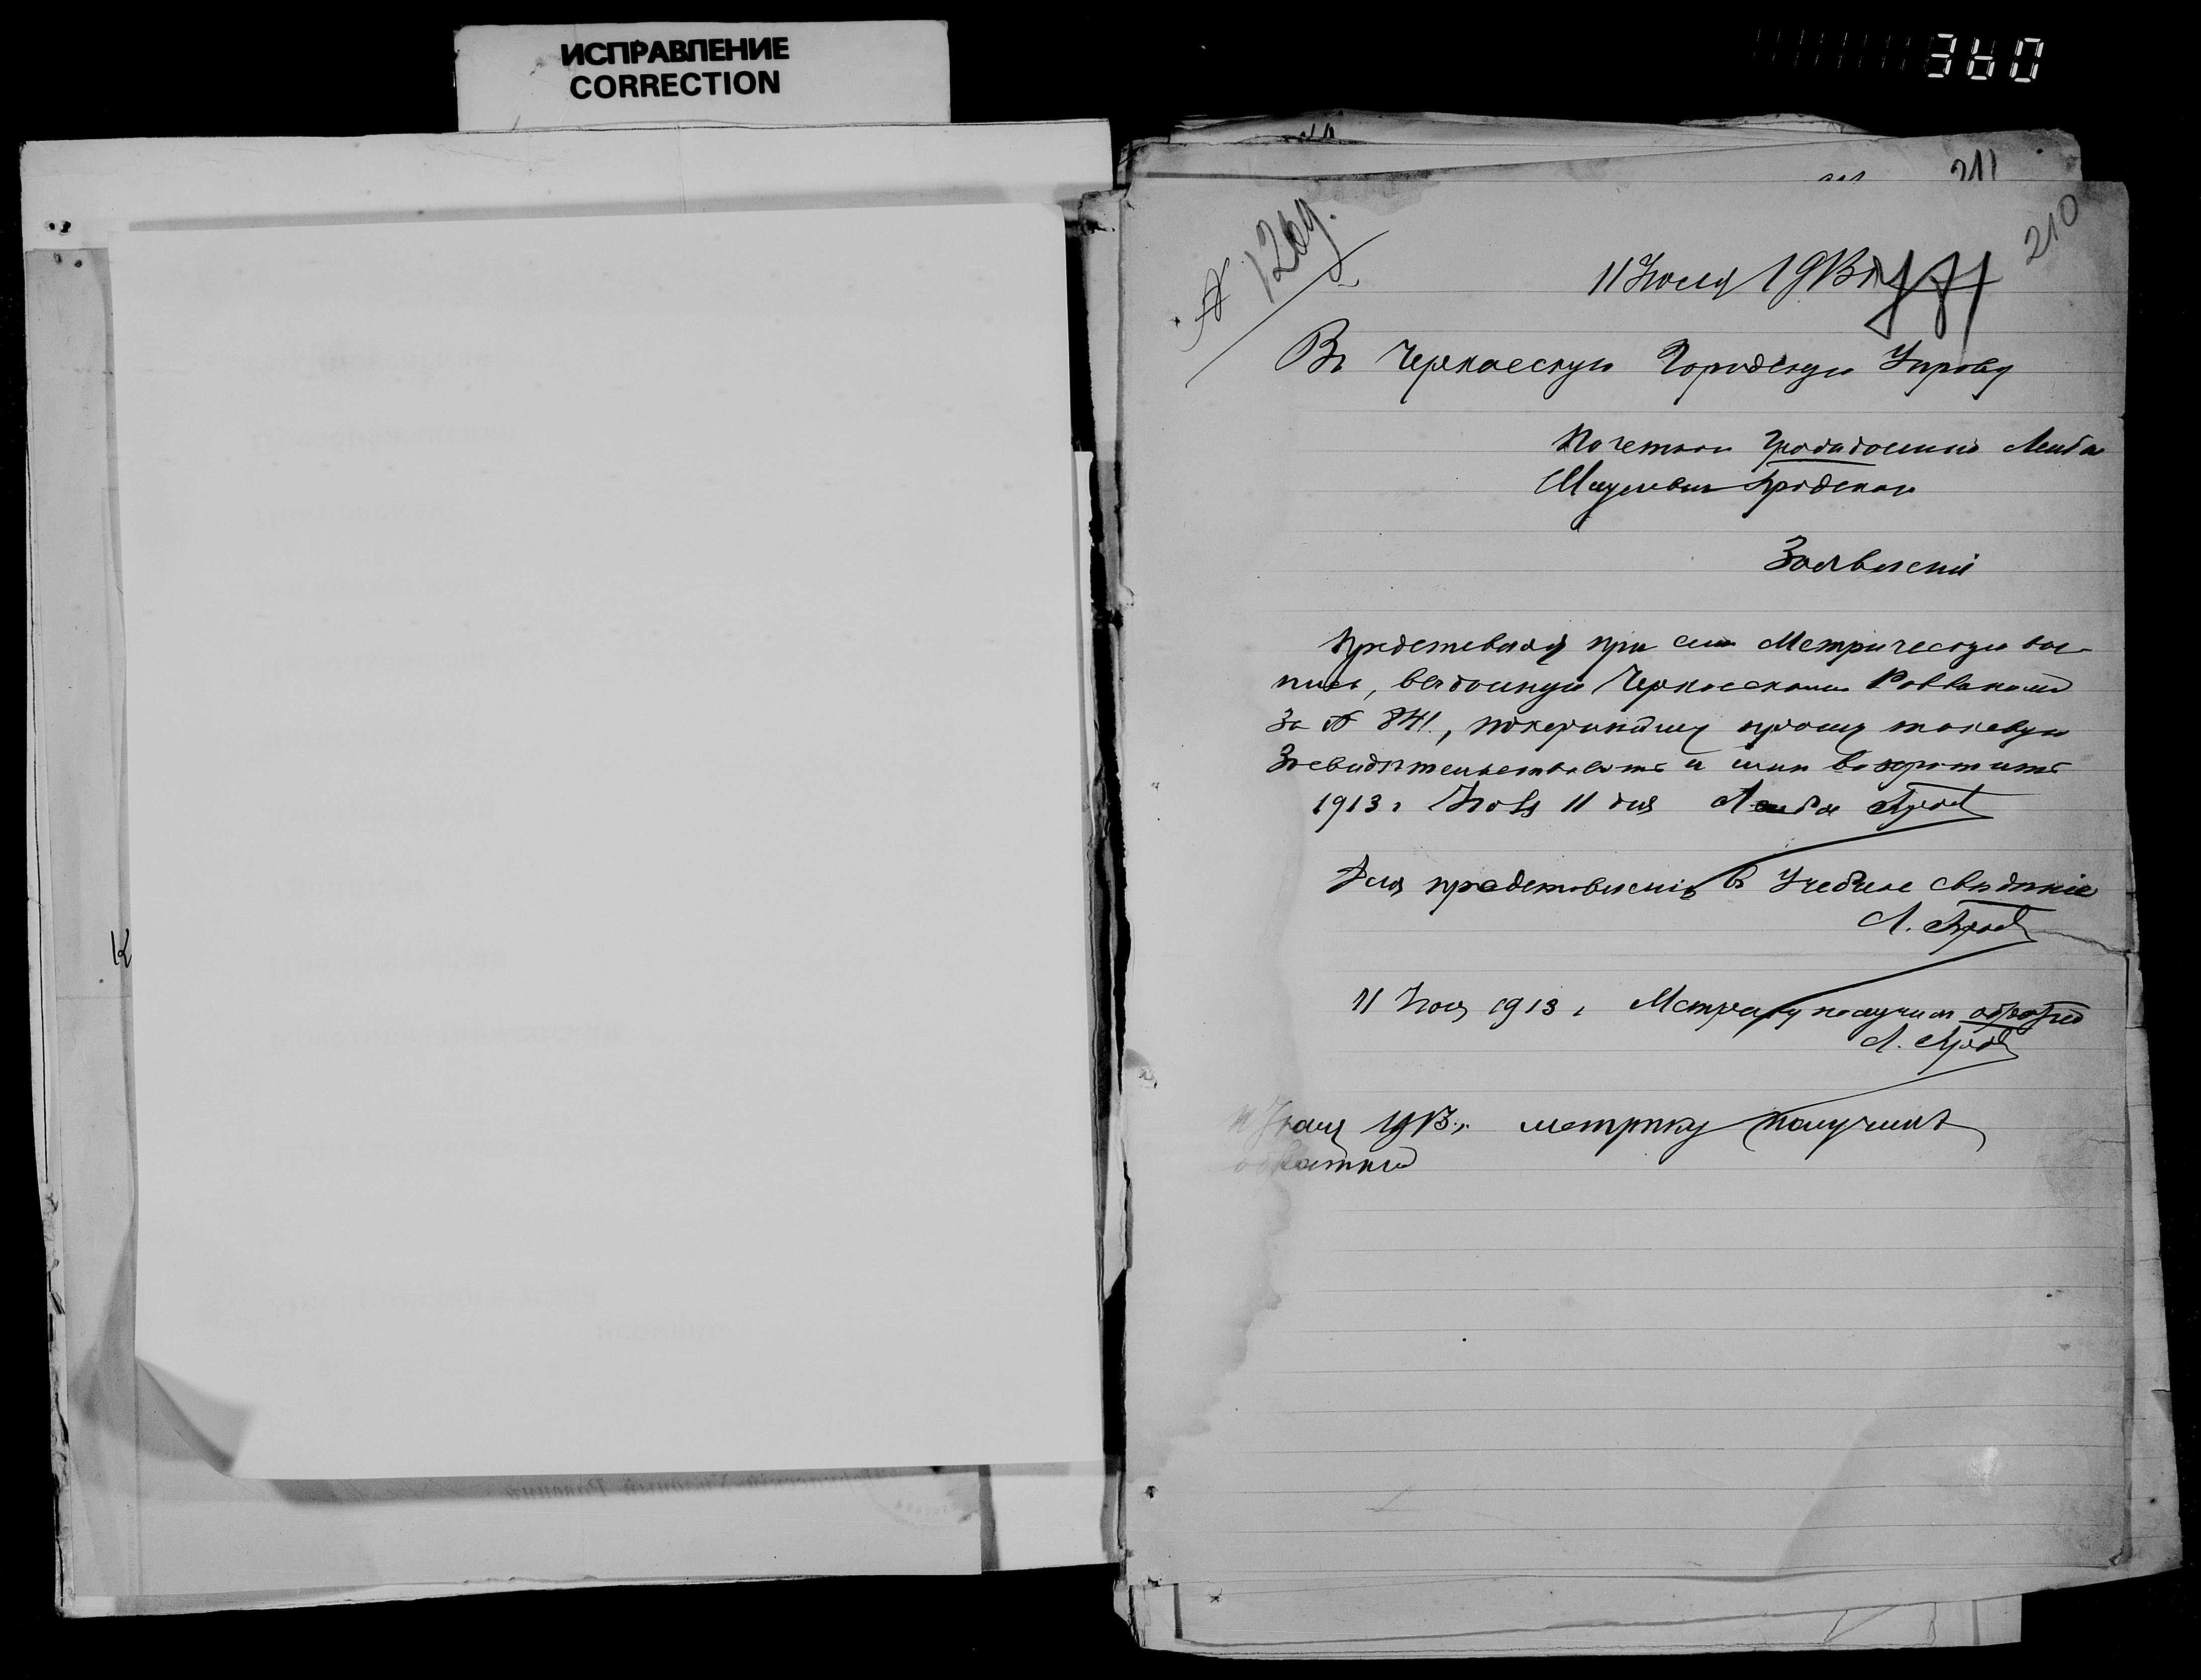 ИСПРАВЛЕНИЕ
CORRECTION
360
211
210
№ 1269.
11 Июля 1913 г.
Въ Черкасскую Городскую Управу
Почетнаго Гражданина Лейба
Бродскаго
Заявленіе
Представляя при семъ Метрическую вы-
пись, выданную Черкасскимъ Раввиномъ
За № 841, покорнѣйше прошу таковую
Засвидѣтельствовать и мнѣ возвратить
1913 г. Июля 11 дня Лейба Брод
Для представленія въ Учебное
Л. Брод
11 Июля 1913 г. Метрику получилъ обратно
Л. Брод
11 Июля 1913 г. метрику получилъ
обратно